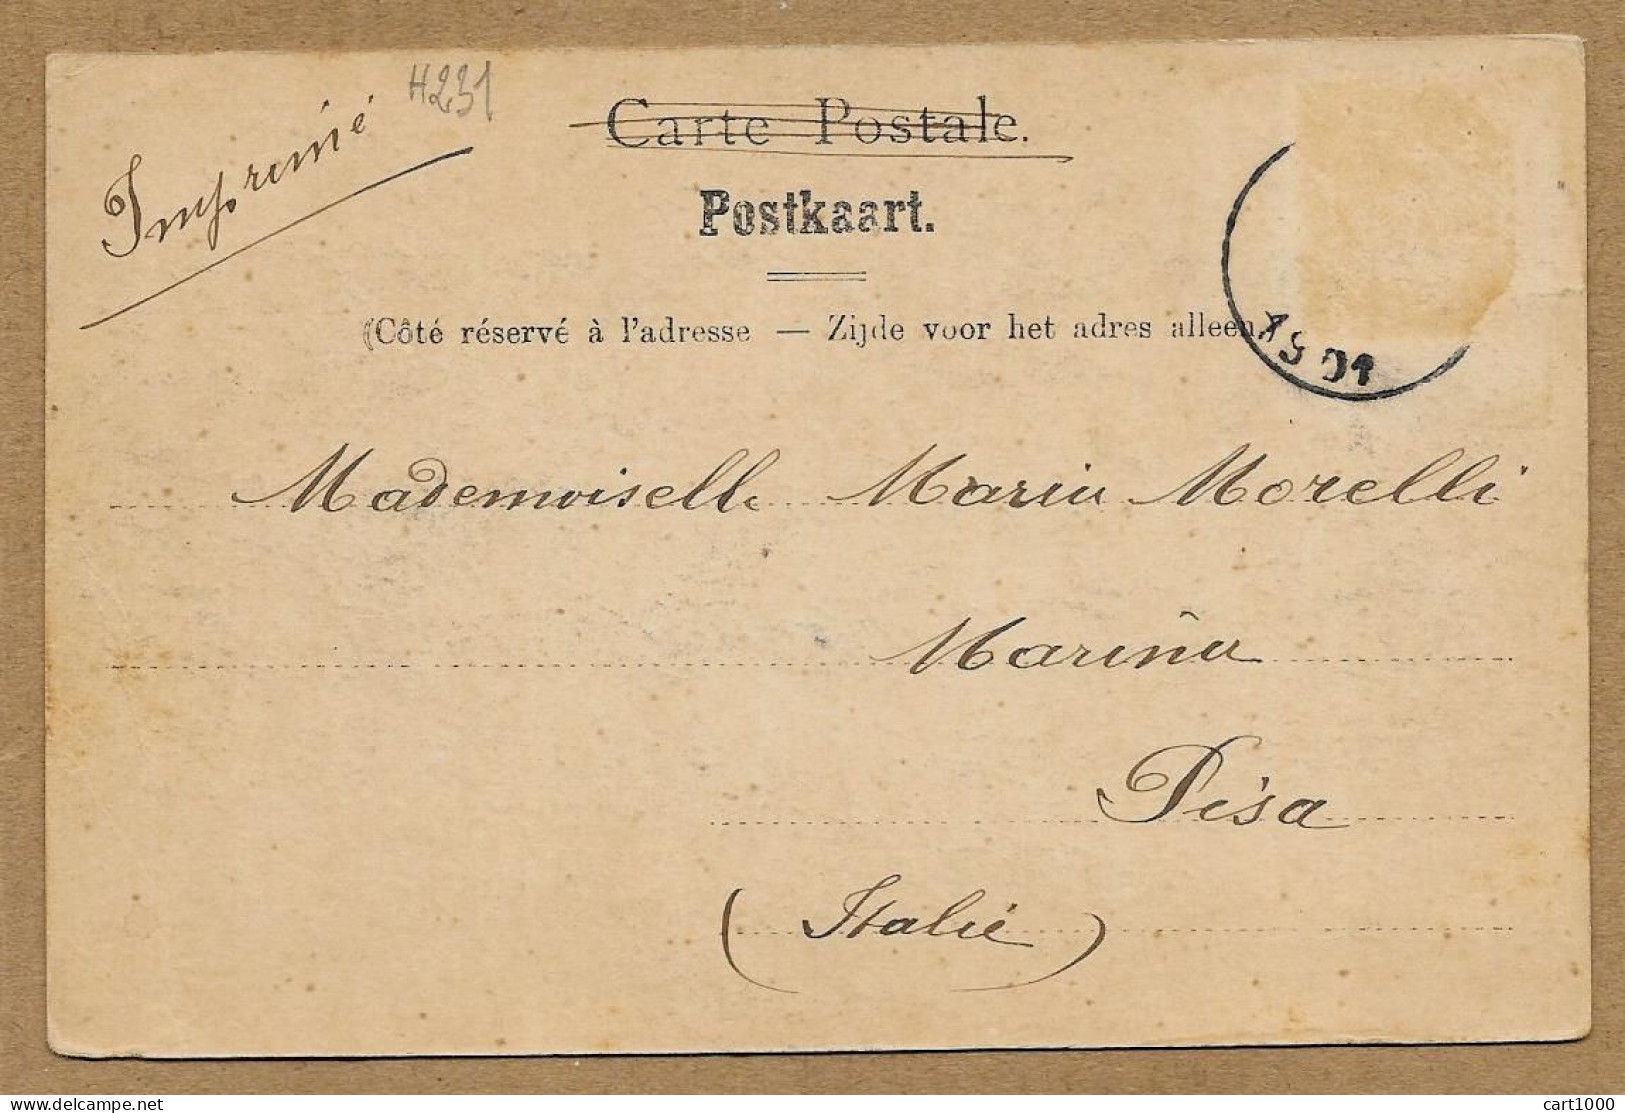 H231
Imprimé
Carte Postale.
Postkaart.
(Côté réservé à l'adresse — Zijde voor het adres alleen
Mademoiselle Maria Morelli
Marina
Pisa
(Italie)
delcampe.net
cart1000